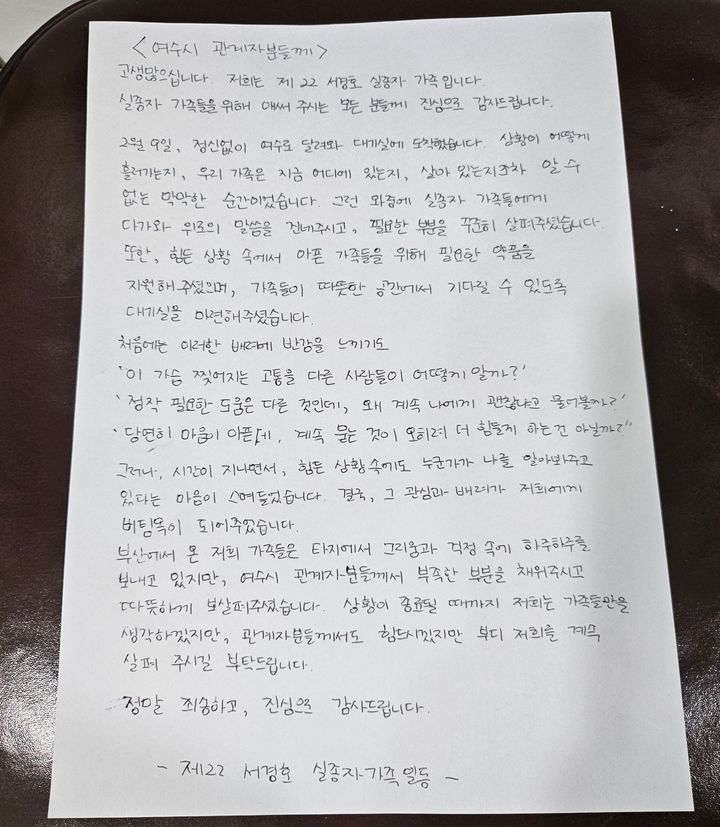 <여수시 관계자분들께>
고생많으십니다. 저희는 제22 서경호 실종자 가족입니다.
실종자 가족들을 위해 애써 주시는 모든 분들께 진심으로 감사드립니다.
2월 9일, 정신없이 여수로 달려와 대기실에 도착했습니다. 상황이 어떻게
흘러가는지, 우리 가족은 지금 어디에 있는지, 살아 있는지조차 알 수
없는 막막한 순간이었습니다. 그런 와중에 실종자 가족들에게
다가와 위로의 말씀을 건네주시고, 필요한 부분을 꾸준히 살펴주셨습니다.
또한, 힘든 상황 속에서 아픈 가족들을 위해 필요한 약품을
지원해주셨으며, 가족들이 따뜻한 공간에서 기다릴 수 있도록
대기실을 마련해주셨습니다.
처음에는 이러한 배려에 반감을 느끼기도
'이 가슴 찢어지는 고통을 다른 사람들이 어떻게 알까?'
'정작 필요한 도움은 다른 것인데, 왜 계속 나에게 괜찮냐고 물어볼까?'
'당연히 마음이 아픈데, 계속 묻는 것이 오히려 더 힘들게 하는건 아닐까?'
그러나, 시간이 지나면서, 힘든 상황속에도 누군가가 나를 알아봐주고
있다는 마음이 스며들었습니다. 결국, 그 관심과 배려가 저희에게
버팀목이 되어주었습니다.
부산에서 온 저희 가족들은 타지에서 그리움과 걱정 속에 하루하루를
보내고 있지만, 여수시 관계자분들께서 부족한 부분을 채워주시고
따뜻하게 보살펴주셨습니다. 상황이 종료될 때까지 저희는 가족들만을
생각하겠지만, 관계자분들께서도 힘드시겠지만 부디 저희를 계속
살펴 주시길 부탁드립니다.
정말 죄송하고, 진심으로 감사드립니다.
- 제22 서경호 실종자가족 일동 -